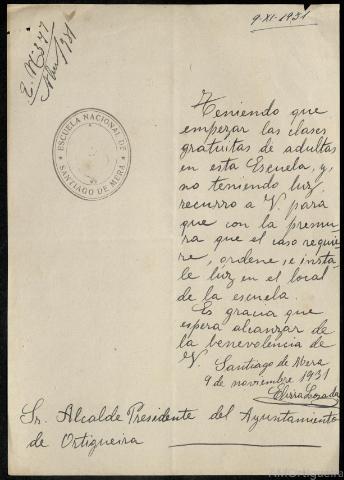 9-XI-1931
E. Nº 377
ESCUELA NACIONAL DE
SANTIAGO DE MERA
Teniendo que
empezar las clases
gratuitas de adultas
en esta Escuela, y,
no teniendo luz,
recurro a V. para
que con la premu-
ra que el caso requie-
re, ordene, se insta-
le luz en el local
de la escuela.
Es gracia que
espera alcanzar de
la benevolencia de
V.
Santiago de Mera
9 de noviembre 1931
Elvira Lozada
Sr. Alcalde Presidente del Ayuntamiento
de Ortigueira
AMOrtigueira